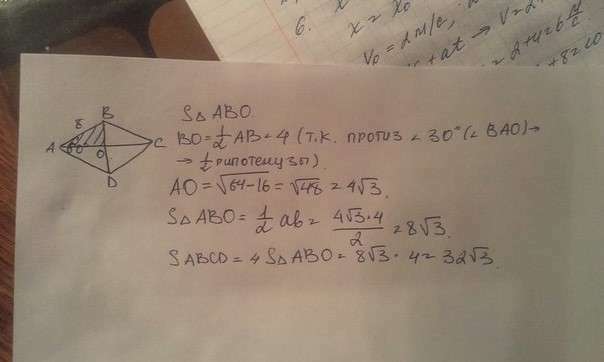 6. x = x₀
V₀ = 2 м/с
+ at → V = 2
= 2+4=6 м/с
+ 8 =
B
8
A
60
O
C
D
S△ ABO.
BO = 1/2 AB = 4 (т.к. против < 30° (< BAO) →
→ 1/2 гипотенузы).
AO = √64-16 = √48 = 4√3.
S△ ABO = 1/2 ab = 4√3·4/2 = 8√3.
SABCD = 4 S△ ABO = 8√3 · 4 = 32√3.